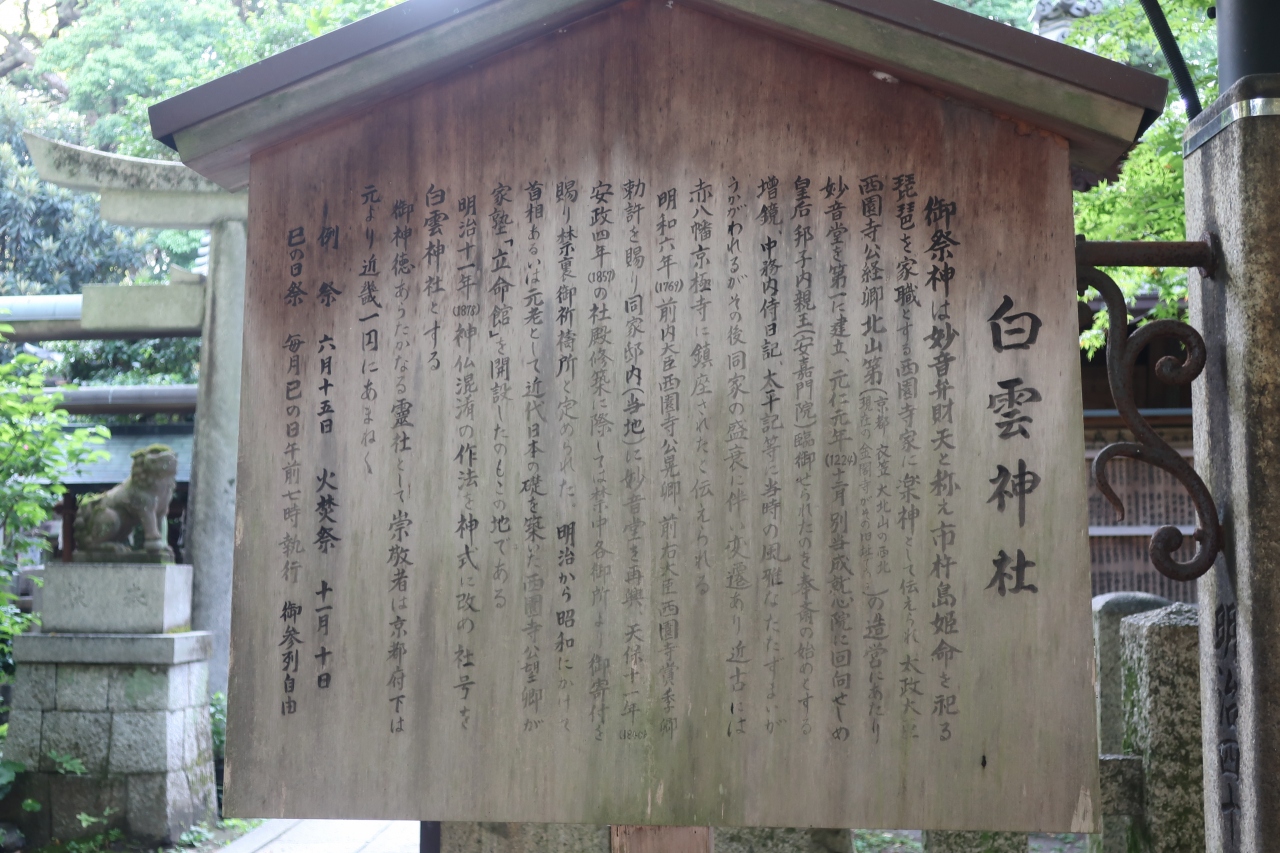 白雲神社
御祭神は妙音弁財天と称え市杵島姫命を祀る
琵琶を家職とする西園寺家に楽神として伝えられ 太政大臣
西園寺公経卿北山第(京都 衣笠 大北山の西北
の造営にあたり
妙音堂を第一に建立、元仁元年(1224)十二月 別当成就心院に回向せしめ
皇后邦子内親王(安嘉門院)臨御せられたのを奉斎の始めとする
増鏡、中務内侍日記、太平記等に当時の風雅なたたずまいが
うかがわれるがその後同家の盛衰に伴い変遷あり 近古には
赤八幡京極寺に鎮座されたと伝えられる
明和六年(1769)前内大臣西園寺公晃卿、前右大臣西園寺賞季卿
勅許を賜り同家邸内(当地)に妙音堂を再興、天保十一年(1840)
安政四年(1857)の社殿修築に際しては禁中各御所より 御寄付を
賜り禁裏御祈祷所と定められた、明治から昭和にかけて
首相あるいは元老として近代日本の礎を築いた西園寺公望卿が
家塾「立命館」を開設したのもこの地である
明治十一年(1878)神仏混淆の作法を神式に改め 社号を
白雲神社とする
御神徳あらたかなる霊社として崇敬者は京都府下は
元より近畿一円にあまねく
例祭 六月十五日 火焚祭 十一月十日
巳の日祭 毎月巳の日午前七時執行 御参列自由
明治四十